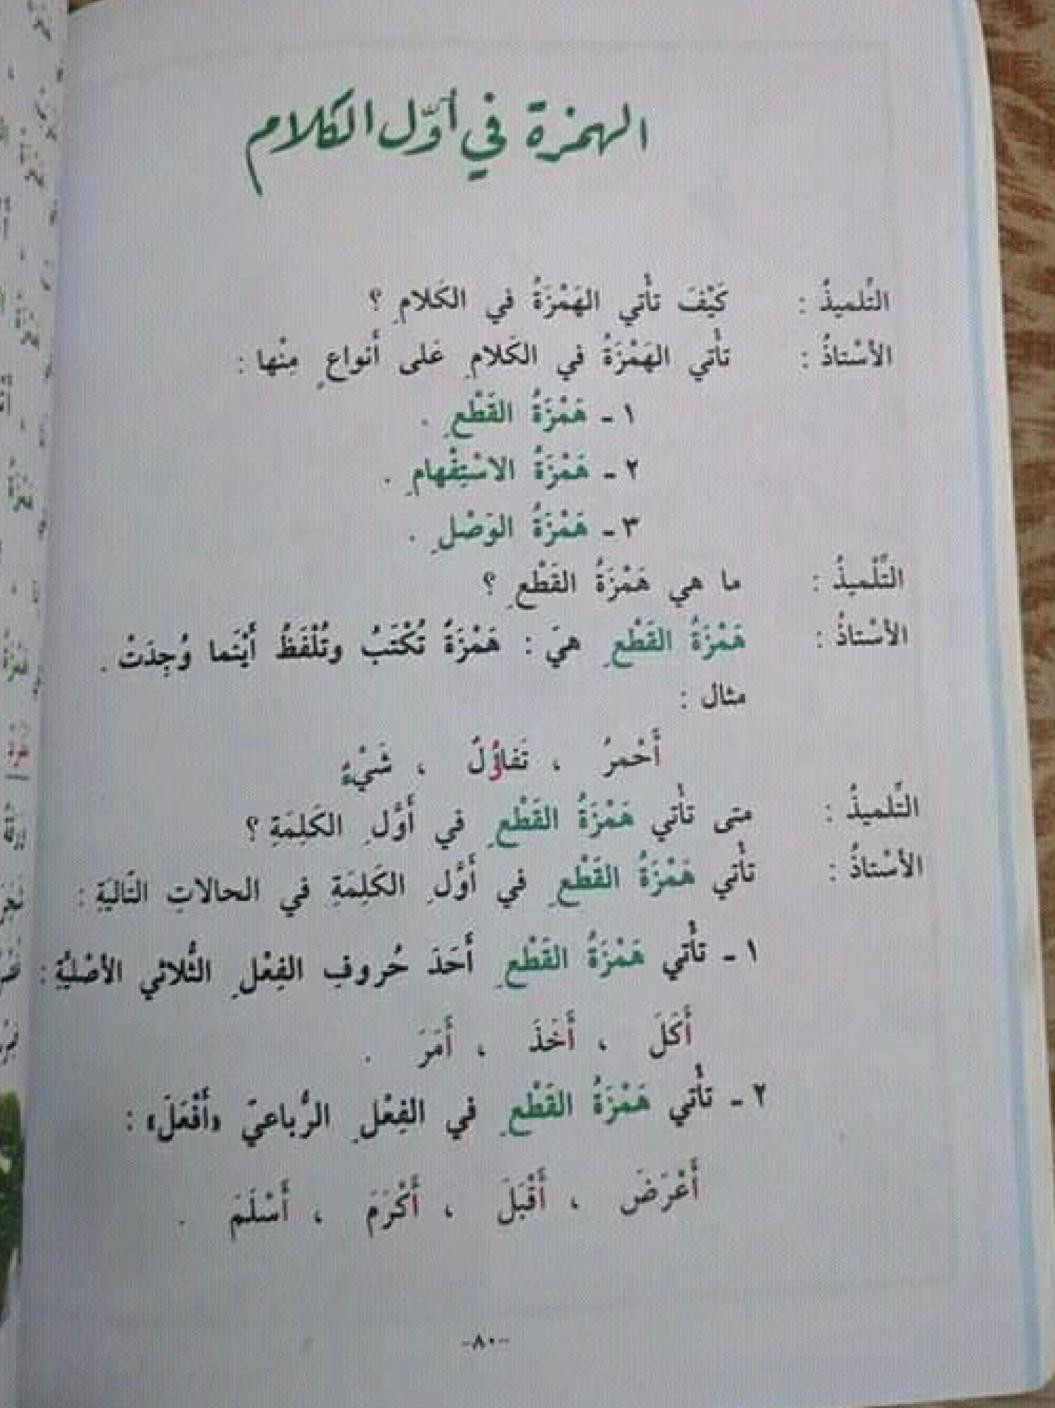 الهمزة في أوّل الكلام
التِّلميذُ : كَيْفَ تأْتي الهَمْزَةُ في الكَلامِ ؟
الأسْتاذُ : تأْتي الهَمْزَةُ في الكَلامِ عَلى أَنواعٍ مِنْها :
١ ـ هَمْزَةُ القَطْعِ .
٢ ـ هَمْزَةُ الاسْتِفْهامِ .
٣ ـ هَمْزَةُ الوَصْلِ .
التِّلْميذُ : ما هي هَمْزَةُ القَطْعِ ؟
الأسْتاذُ : هَمْزَةُ القَطْعِ هيَ : هَمْزَةٌ تُكْتَبُ وتُلْفَظُ أَيْنَما وُجِدَتْ .
مثال :
أَحْمرُ ، تَفاؤُلٌ ، شَيْءٌ
التِّلميذُ : متى تأْتي هَمْزَةُ القَطْعِ في أَوَّلِ الكَلِمَةِ ؟
الأسْتاذُ : تأْتي هَمْزَةُ القَطْعِ في أَوَّلِ الكَلِمَةِ في الحالاتِ التّاليَةِ :
١ ـ تأْتي هَمْزَةُ القَطْعِ أَحَدَ حُروفِ الفِعْلِ الثُّلاثي الأصْليَّةِ :
أَكَلَ ، أَخَذَ ، أَمَرَ .
٢ ـ تأْتي هَمْزَةُ القَطْعِ في الفِعْلِ الرُّباعيّ «أَفْعَلَ» :
أَعْرَضَ ، أَقْبَلَ ، أَكْرَمَ ، أَسْلَمَ .
-٨٠-